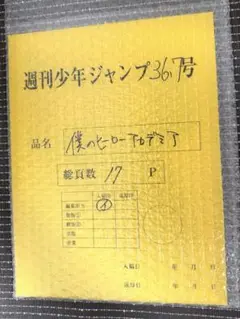 週刊少年ジャンプ36.7号
品名 僕のヒーローアカデミア
総頁数 17 P
入稿日 年 月 日